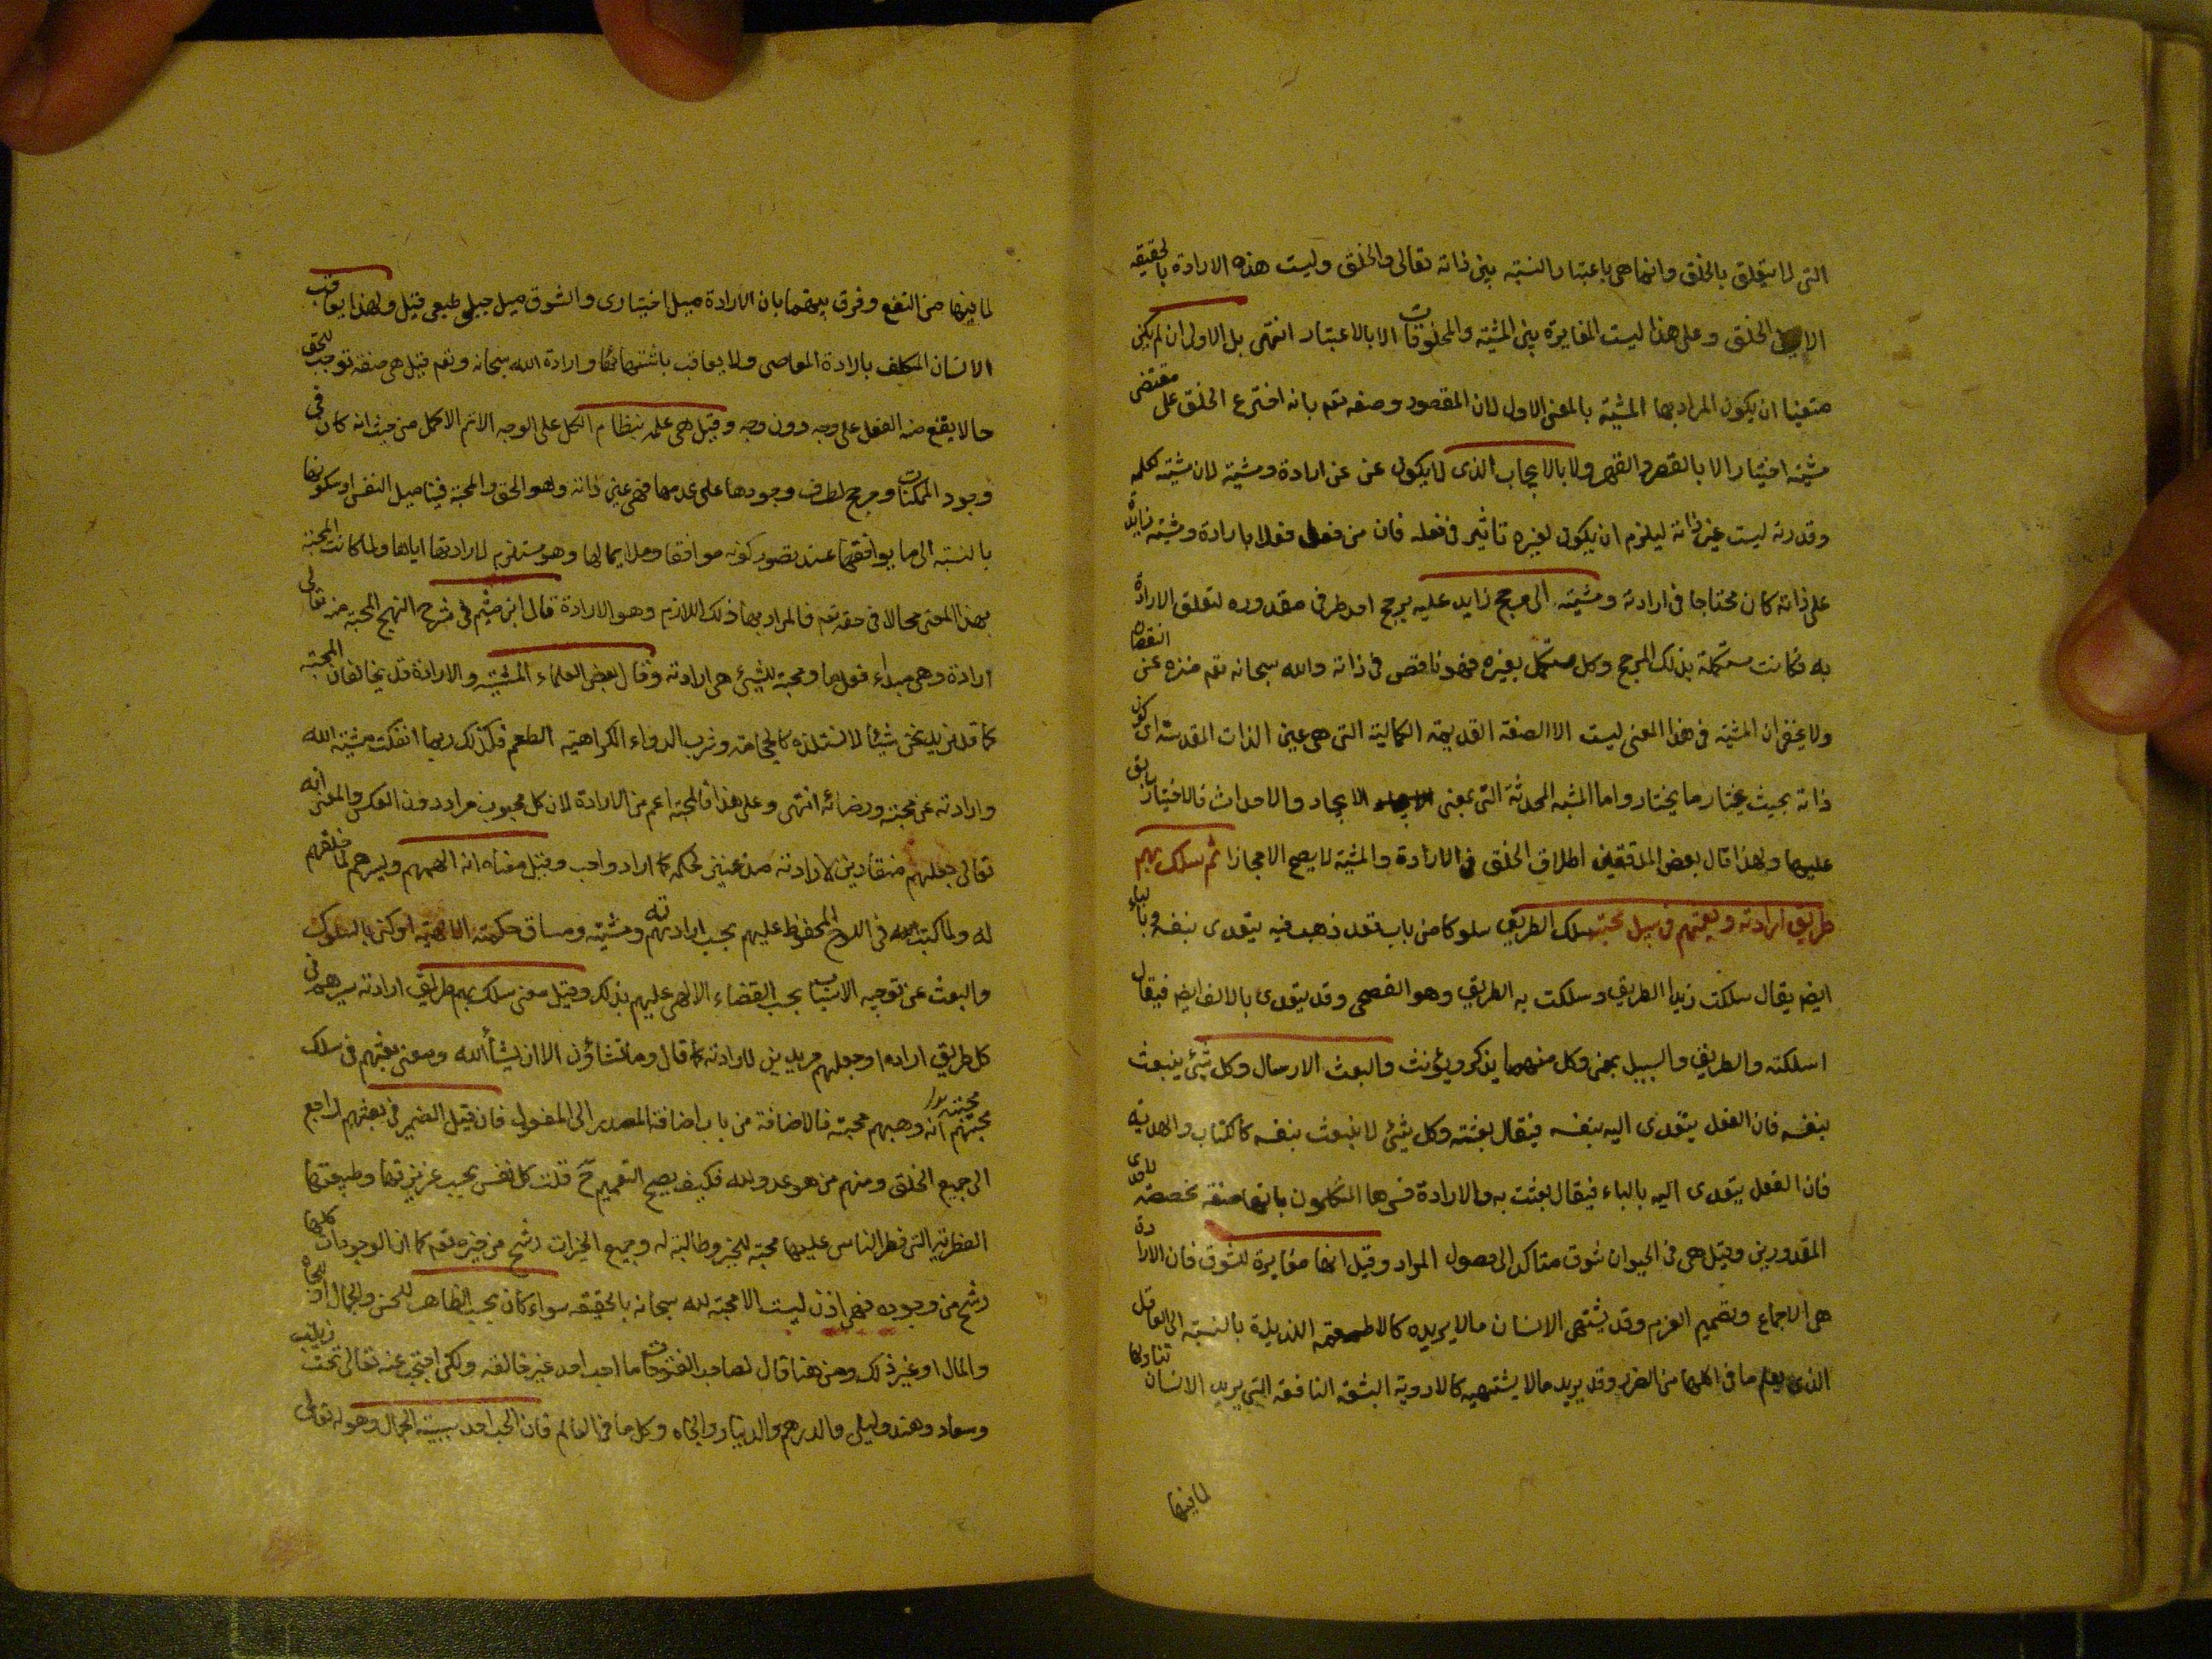 التى لا يتعلق بالخلق وانما هى باعتبار النسبة بين ذاته تعالى والخلق وليست هذه الارادة بالحقيقه
الا الخلق وعلى هذا ليست المغايرة بين المشية والمخلوقات الا بالاعتبار انتهى بل الاولى ان لم يكن
متعينا ان يكون المراد بها المشية بالمعنى الاول لان المقصود وصفه تعم بانه اخترع الخلق على مقتضى
مشيته اختيارا لا بالقصر والقهر ولا بالايجاب الذى لا يكون عن عن ارادة ومشية لان مشيته كعلمه
وقدرته ليست غير ذاته ليلزم ان يكون لغيره تاثير فى فعله فان من فعل فعلا بارادة ومشية زايدة
على ذاته كان محتاجا فى ارادته ومشيته الى مرجح زايد عليه يرجح احد طرفى مقدوره لتعلق الارادة
به فكانت مستكملة بذلك المرجح وكل مستكمل بغيره فهو ناقص فى ذاته والله سبحانه تعم منزه عن النقصان
ولا يخفى ان المشية فى هذا المعنى ليست الا الصفة القديمة الكمالية التى هى عين الذات المقدسة اى كون
ذاته بحيث يختار ما يختار واما المشية المحدثة التى بمعنى الايجاد والاحداث فالاختيار سابق
عليها ولهذا قال بعض المدققين اطلاق الخلق فى الارادة والمشية لا يصح الا مجازا ثم سلك بهم
طريق ارادته وبعثهم فى سبيل محبته سلك الطريق سلوكا من باب قعد ذهب فيه يتعدى بنفسه وبالباء
ايضم يقال سلكت زيدا الطريق وسلكت به الطريق وهو الفصحى وقد يتعدى بالالف ايضم فيقال
اسلكته والطريق والسبيل بمعنى وكل منهما يذكر ويؤنث والبعث الارسال وكل شئ ينبعث
بنفسه فان الفعل يتعدى اليه بنفسه فيقال بعثته وكل شئ لا ينبعث بنفسه كالكتاب والهدية
فان الفعل يتعدى اليه بالباء فيقال بعثت به والارادة فسرها المتكلمون بانها صفة مخصصة لاحدى
المقدورين وقيل هى فى الحيوان شوق متاكد الى حصول المراد وقيل انها مغايرة للشوق فان الارادة
هى الاجماع وتصميم العزم وقد يشتهى الانسان مالا يريده كالاطعمة اللذيذة بالنسبة الى العاقل
الذى يعلم ما فى اكلها من الضرر وقد يريد مالا يشتهيه كالادوية البشعة النافعة التى يريد الانسان تناولها
لما فيها
لما فيها من النفع وفرق بينهما بان الارادة ميل اختيارى والشوق ميل جبلى طبعى قيل ولهذا يعاقب
الانسان المكلف بالارادة المعاصى ولا يعاقب باشتهائها وارادة الله سبحانه وتعم قيل هى صفة توجب للحق
حالا يقع منه الفعل على وجه دون وجه وقيل هى علمه بنظام الكل على الوجه الاتم الاكمل من حيث انه كان فى
وجود الممكنات ومرجح لطرف وجودها على عدمها فهى عين ذاته وهو الحق والمحبة فينا ميل النفس او سكونها
بالنسبة الى ما يوافقها عند تصور كونه موافقا وملايما لها وهو مستلزم لارادتها اياها ولما كانت المحبة
بهذا المعنى محالا فى حقه تعم فالمراد بها ذلك اللازم وهو الارادة قال ابن ميثم فى شرح النهج المحبة منه تعالى
ارادة وهى مبداء فعل ما ومحبة للشئ هى ارادته وقال بعض العلماء المشية والارادة قد يخالفان المحبة
كما قد نريد نحن شيئا لا نستلذه كالحجامة وشرب الدواء الكراهية الطعم فكذلك ربما انفكت مشية الله
وارادته عن محبته ورضائه انتهى وعلى هذا فالمحبة اعم من الارادة لان كل محبوب مراد دون العكس والمعنى انه
تعالى جعلهم منقادين لارادته مذعنين لحكمه كما اراد واحب وقيل معناه انه الهمهم ويسرهم لما خلقهم
له ولما كتب الله فى اللوح المحفوظ عليهم بحسب ارادته ومشيته ومساق حكمته الالهية او كنى بالسلوك
والبعث عن توجيه الاسباب بحسب القضاء الالهى عليهم بذلك وقيل معنى سلك بهم طريق ارادته سيرهم فى
كل طريق اراده او جعلهم مريدين لارادته كما قال وما تشاؤن الا ان يشاء الله ومعنى بعثهم فى سلك
محبته بدل
محبتهم انه وهبهم محبته فالاضافة من باب اضافة المصدر الى المفعول فان قيل الضمير فى بعثهم راجع
الى جميع الخلق ومنهم من هو عدو لله فكيف يصح التعميم ح قلت كل نفس بحسب غريزتها وطبيعتها
الفطرية التى فطر الناس عليها محبة للخير وطالبة له وجميع الخيرات رشح من خيره تعم كما ان الوجودات كلها
رشح من وجوده فهى اذن ليست الا محبة لله سبحانه بالحقيقه سواء كان بحسب الظاهر للحسن والجمال او للجاه
والمال او غير ذلك ومن هنا قال صاحب الفتوحات ما احب احد غير خالقه ولكن احتجب عنه تعالى تحت زينب
وسعاد وهند وليلى والدرهم والدينار والجاه وكل ما فى العالم فان الحب احد سببيه الجمال وهو له تعالى